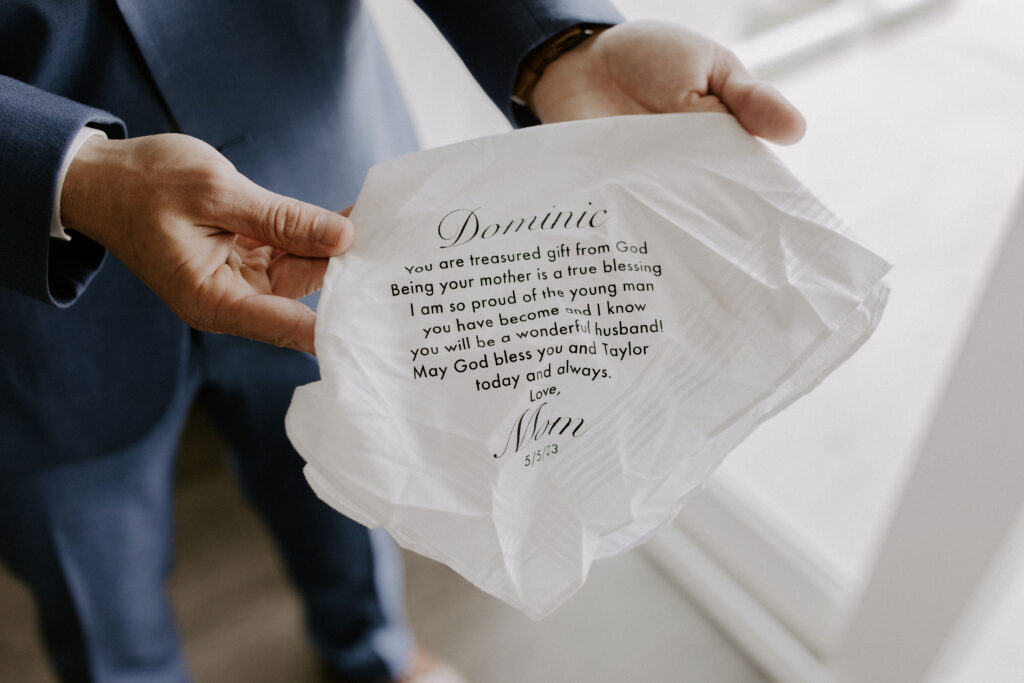 Dominic
You are treasured gift from God
Being your mother is a true blessing
I am so proud of the young man
you have become and I know
you will be a wonderful husband!
May God bless you and Taylor
today and always.
Love,
Mom
5/5/23